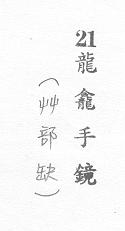 21龍龕手鏡
（艸部缺）